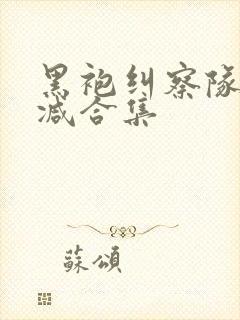 黑袍纠察队
减合集
蘇頌